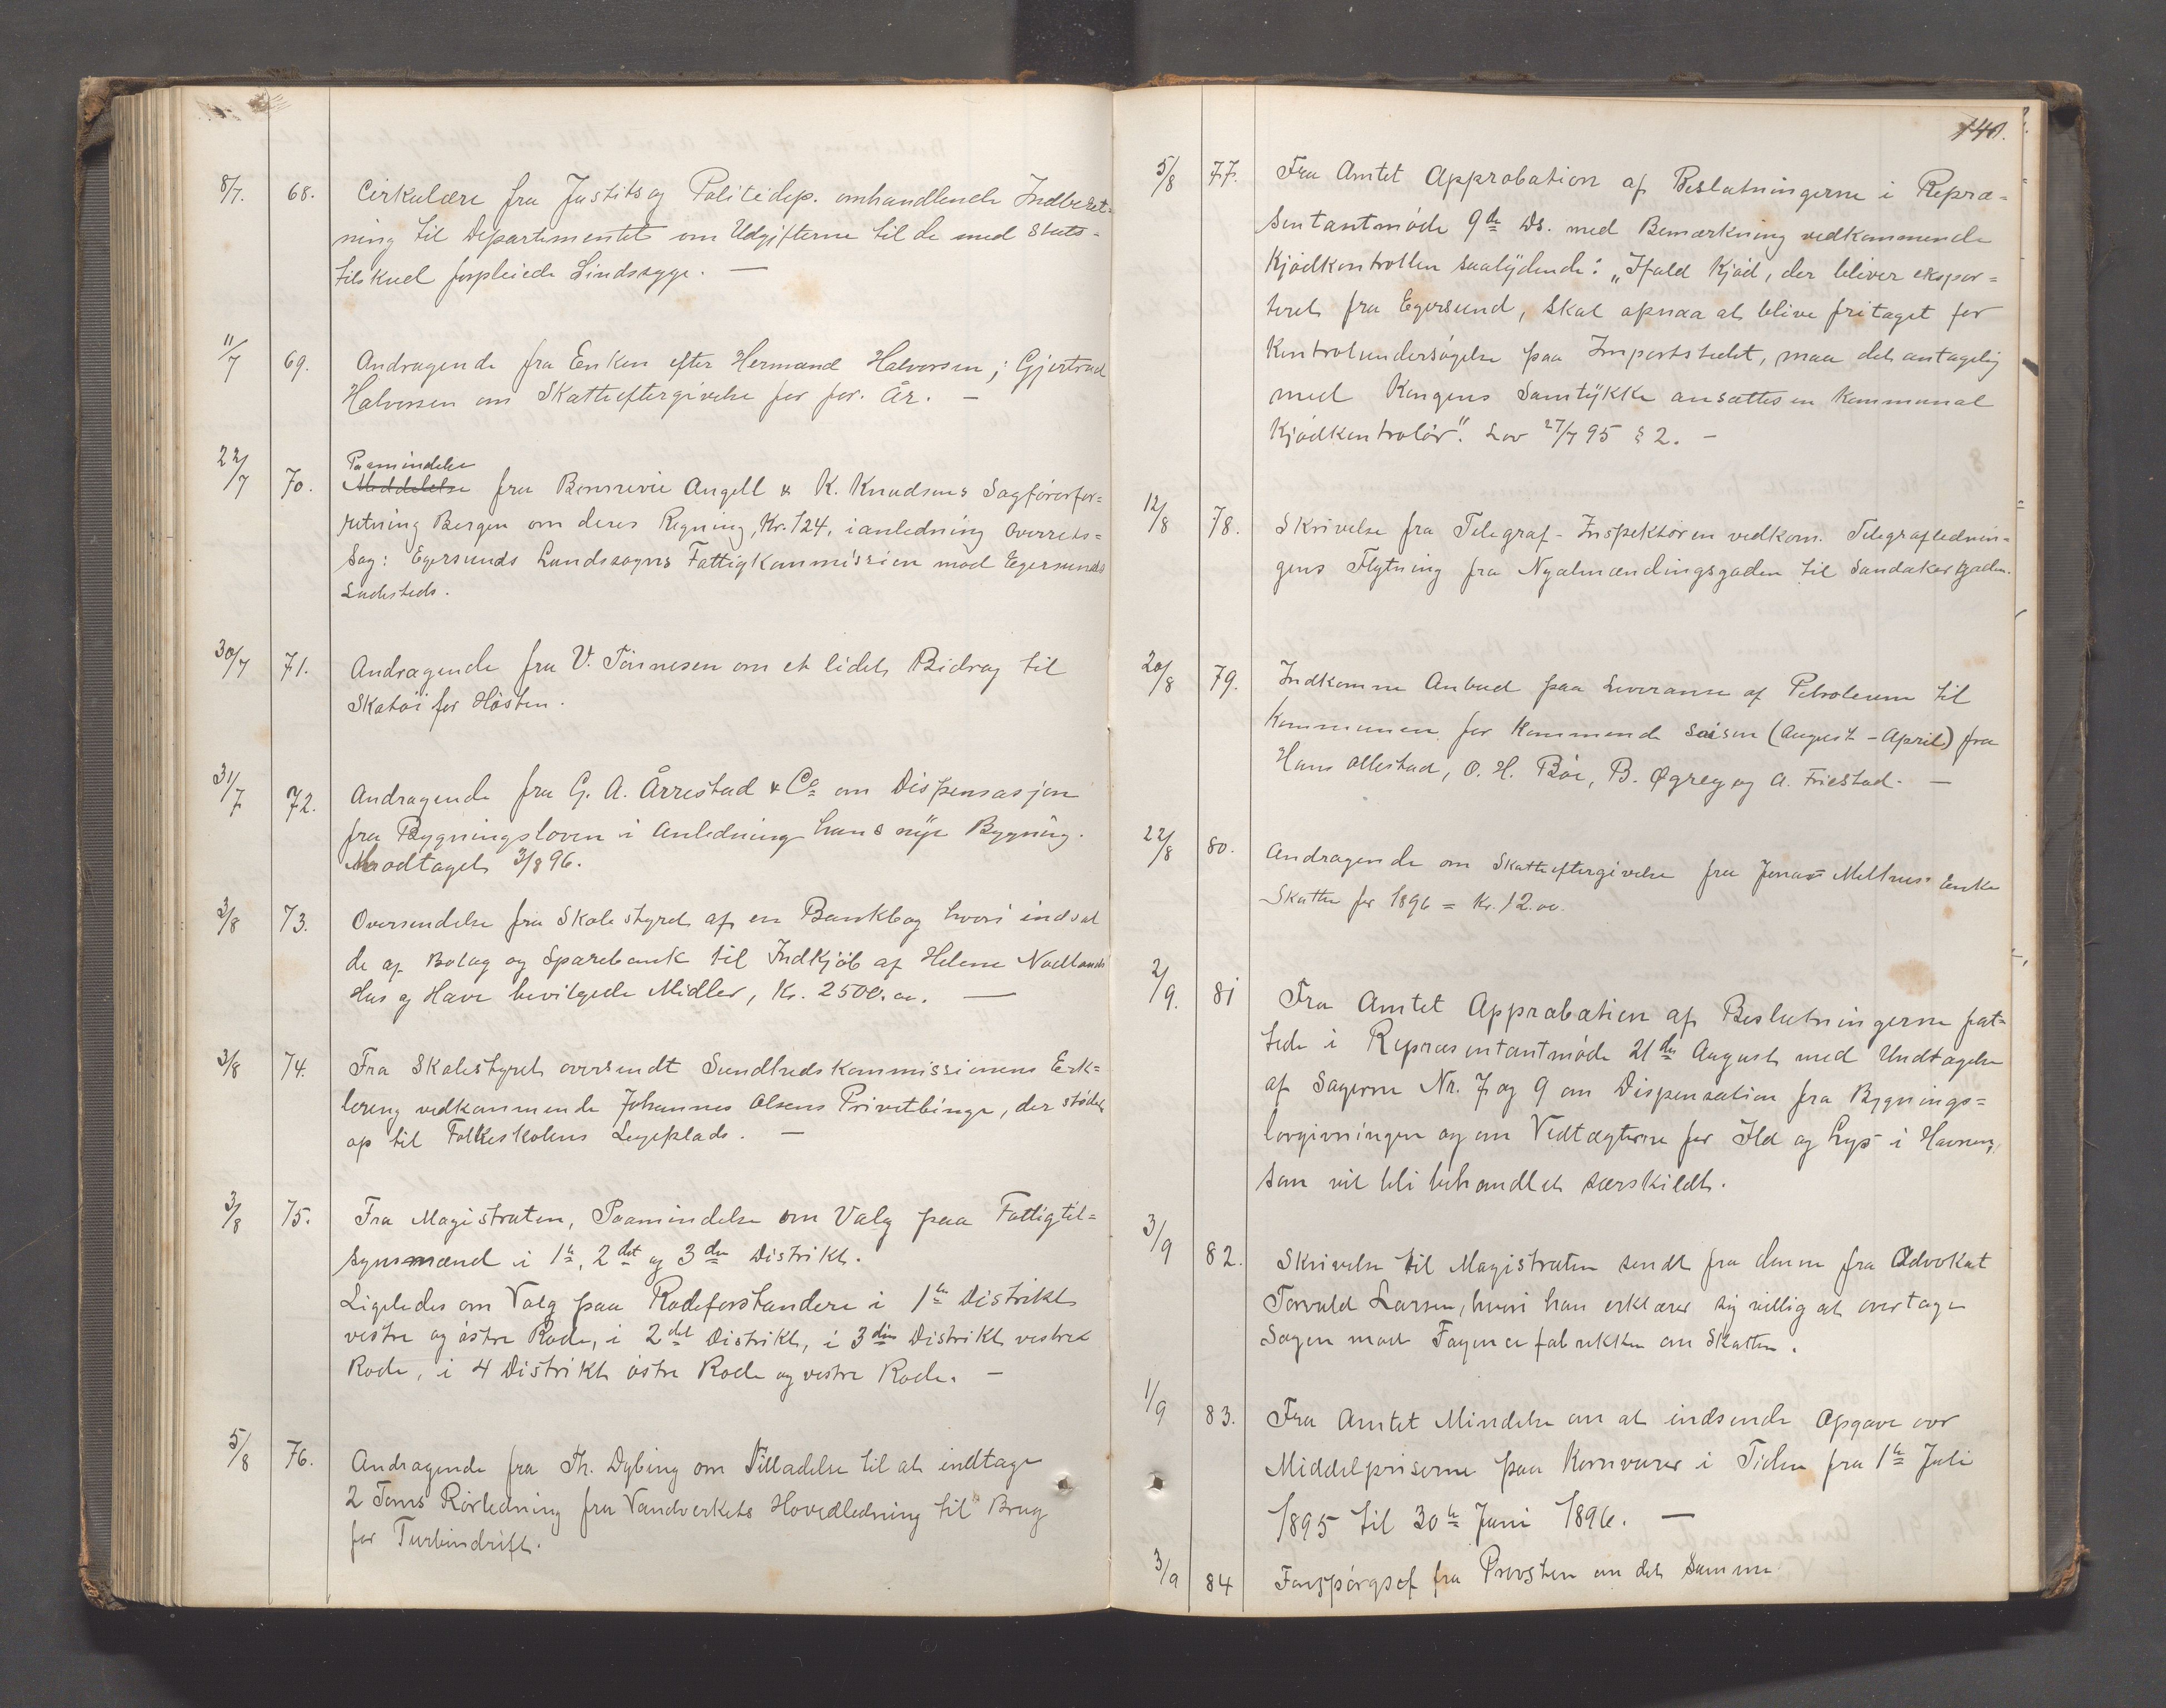 8/7. 68. Cirkulære fra Justits og Politidep. omhandlende Indberet-
ning til Departementet om Udgifterne til de med Stats-
tilskud forpleiede Sindssyge. —
11/7 69. Andragende fra Enken efter Hermand Halvorsen; Gjertrud
Halvorsen om Skatteeftergivelse for for. År. —
Paamindelse
22/7 70. Meddelelse fra Bonnevie Angell & K. Knudsens Sagførerfor-
retning Bergen om deres Regning, Kr. 124, i anledning Overrets-
Sag: Egersunds Landsogns Fattigkommission mod Egersunds
Ladesteds.
30/7 71. Andragende fra V. Tönnesen om et lidet Bidrag til
Skatøi for Høsten.
31/7 72. Andragende fra G. A. Årrestad & Co om Dispensasjon
fra Bygningsloven i Anledning hans nye Bygning.
Modtaget 3/8 96.
3/8 73. Oversendelse fra Skolestyret af en Bankbog hvori indsat
de af Bolag og Sparebank til Indkjøb af Helene Nodlands
Hus og Have bevilgede Midler, Kr. 2500.00. —
3/8 74. Fra Skolestyret oversendt Sundhedskommissionens Erk-
lering vedkommende Johannes Olsens Privetbinge, der støder
op til Folkeskolens Legeplads. —
3/8 75. Fra Magistraten, Paamindelse om Valg paa Fattigtil-
synsmænd i 1te, 2det og 3die Distrikt.
Ligeledes om Valg paa Rodeforstandere i 1te Distrikt
vestre og østre Rode, i 2det Distrikt, i 3die Distrikt vestre
Rode, i 4 Distrikt østre Rode og vestre Rode. —
5/8 76. Andragende fra Th. Dybing om Tilladelse til at indtage
2 Toms Rørledning fra Vandverkets Hovedledning til Brug
for Turbindrift.
140.
5/8 77. Fra Amtet Approbation af Beslutningerne i Repræ-
sentantmøde 9de Ds. med Bemærkning vedkommende
Kjødkontrollen saalydende: „Ifald Kjød, der bliver ekspor-
teret fra Egersund, skal opnaa at blive fritaget for
Kontrolundersøgelse paa Importstedet, maa det antagelig
med Kongens Samtykke ansættes en Kommunal
Kjødkontrolør". Lov 27/7 95 § 2. —
12/8 78. Skrivelse fra Telegraf-Inspektøren vedkom. Telegraflednin-
gens Flytning fra Nyalmændingsgaden til Sandakergaden.
20/8 79. Indkomne Anbud paa Leveranse af Petroleum til
Kommunen for kommende Saison (August - April) fra
Hans Ollestad, O. H. Bøe, B. Øgrey og A. Friestad. —
22/8 80. Andragende om Skatteeftergivelse fra Jonas Melhus Enke
Skatten for 1896 = Kr. 12.00.
2/9. 81 Fra Amtet Approbation af Beslutningerne fat-
tede i Repræsentantmøde 21de August med Undtagelse
af Sagerne Nr. 7 og 9 om Dispensation fra Bygnings-
lovgivningen og om Vedtægterne for Ild og Lys i Havnen,
som vil bli behandlet særskildt.
3/9 82. Skrivelse til Magistraten sendt fra denne fra Advokat
Torvald Larsen, hvori han erklærer sig villig at overtage
Sagen mod Fayancefabrikken om Skatten.
1/9 83. Fra Amtet Mindelse om at indsende Opgave over
Middelpriserne paa Kornvarer i Tiden fra 1te Juli
1895 til 30te Juni 1896. —
3/9 84 Forespørgsel fra Provsten om det Samme